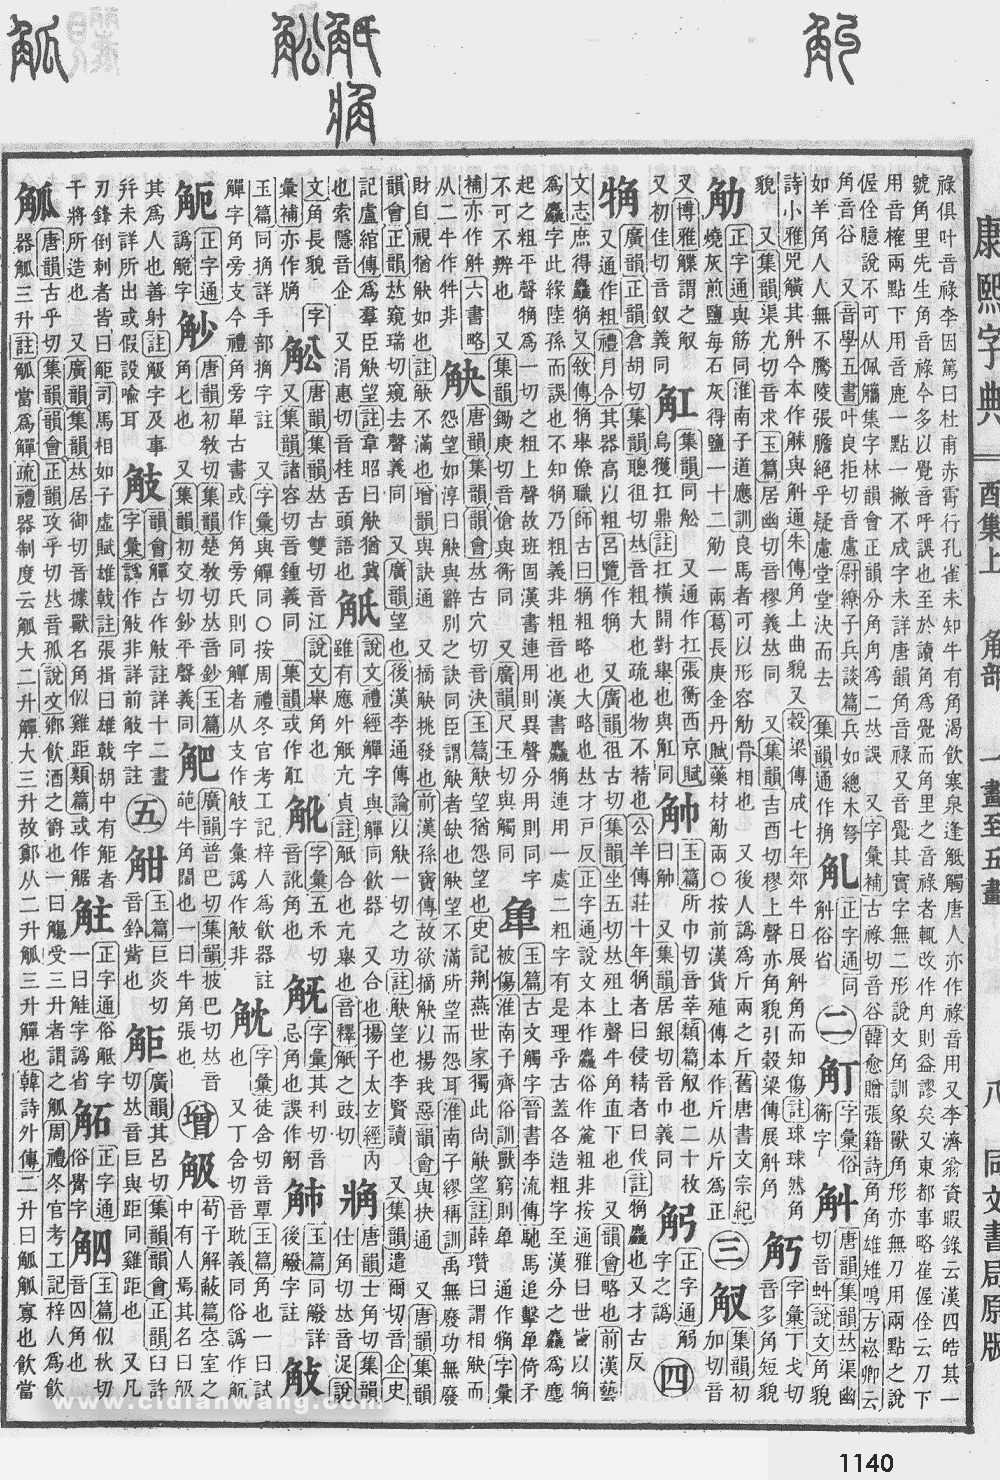 康熙字典 酉集上 角部 一畫至五畫 八 同文書局原版
祿俱叶音祿李因篤曰杜甫赤霄行孔雀未知牛有角渴飲寒泉逢觝觸唐人亦作祿音用又李濟翁資暇錄云漢四皓其一
號角里先生角音祿今多以覺音呼誤也至於讀角爲覺而角里之音祿者輒改作甪則益謬矣又東都事略崔偓佺云刀下
用音榷兩點下用音鹿一點一撇不成字未詳唐韻角音祿又音覺其實字無二形說文角訓象獸角形亦無刀用兩點之說
偓佺臆說不可从佩觿集字林韻會正韻分角甪爲二𠀤誤 又字彙補古祿切音谷韓愈贈張籍詩角角雄雉鳴方崧卿云
角音谷 又音學五書叶良拒切音慮尉繚子兵談篇兵如總木弩
如羊角人人無不騰陵張膽絕乎疑慮堂堂決而去 集韻通作捔
正字通同觓俗省 二 字彙俗衚字 觓 唐韻集韻𠀤渠幽切音虯說文角貌
詩小雅兕觵其觓今本作觩與觓通朱傳角上曲貌又穀梁傳成七年郊牛日展觓角而知傷註球球然角
貌 又集韻渠尤切音求玉篇居幽切音樛義𠀤同 又集韻吉酉切樛上聲亦角貌引穀梁傳展觓角 字彙丁戈切音多角短貌
觔 正字通與筋同淮南子道應訓良馬者可以形容觔骨相也 又後人譌爲斤兩之斤舊唐書文宗紀
燒灰煎鹽每石灰得鹽一十二觔一兩葛長庚金丹賦藥材觔兩○按前漢貨殖傳本作斤从斤爲正 三 集韻初加切音
又博雅觽謂之䚢 又初佳切音釵義同 觓 集韻同舩 又通作扛張衡西京賦烏獲扛鼎註扛橫開對舉也與舡同
玉篇所巾切音莘類篇䚢也二十枚曰 又集韻居銀切音巾義同 正字通觸字之譌 四
觕 廣韻正韻倉胡切集韻聰徂切𠀤音粗大也疏也物不精也公羊傳莊十年觕者曰侵精者曰伐註觕麤也又才古反
又通作粗禮月令其器高以粗呂覽作觕 又廣韻徂古切集韻坐五切𠀤殂上聲牛角直下也 又韻會略也前漢藝
文志庶得麤觕又敘傳觕舉僚職師古曰觕粗略也大略也𠀤才戸反正字通說文本作麤俗作麄粗非按通雅曰世皆以觕
爲麤字此緣陸孫而誤也不知觕乃粗音非粗音也漢書麤觕連用一處二粗字有是理乎古蓋各造粗字至漢分之麤爲麆
起之粗平聲觕爲一切之粗上聲故班固漢書連用則異聲分用則同字
不可不辨也 又集韻鋤庚切音傖與衡同 又廣韻尺玉切與觸同 玉篇古文觸字晉書李流傳馳馬追擊單倚矛
被傷淮南子齊俗訓獸窮則 通作觕字彙
補亦作 六書略从二牛作牪非 觖 唐韻集韻韻會𠀤古穴切音決玉篇觖望猶怨望也史記荆燕世家獨此尚觖望註薛瓚曰謂相觖而
怨望如淳曰觖與辭別之訣同臣謂觖者缺也觖望不滿所望而怨耳淮南子繆稱訓禹無廢功無廢
財自視猶觖如也註觖不滿也增韻與訣通 又摘觖挑發也前漢孫寶傳故欲摘觖以揚我惡韻會與抉通 又唐韻集韻
韻會正韻𠀤窺瑞切窺去聲義同 又廣韻望也後漢李通傳論以觖一切之功註觖望也李賢讀 又集韻遣爾切音企史
記盧綰傳爲羣臣觖望註韋昭曰觖猶冀也索隱音企 又涓惠切音桂舌頭語也
觗 說文禮經觶字與觶同飲器 又合也揚子太玄經內雖有應外觗亢貞註觗合也亢舉也音釋觗之豉切
唐韻士角切集韻仕角切𠀤音浞說文角長貌 字彙補亦作牅
舩 唐韻集韻𠀤古雙切音江說文舉角也 又集韻諸容切音鍾義同 集韻或作舡
字彙五禾切音訛角也 字彙其利切音忌角也誤作觔 玉篇同觱詳後觱字註
玉篇同捔詳手部捔字註 又字彙與觶同○按周禮冬官考工記梓人爲飮器註
觶字角旁支今禮角旁單古書或作角旁氏則同觶者从支作䚳字彙譌作觙非 字彙徒含切音覃玉篇角也一曰試也 又丁含切音耽義同俗譌作䚧
觗 正字通譌觤字 觘 唐韻初敎切集韻楚敎切𠀤音鈔玉篇角匕也 又集韻初交切𠀤鈔平聲義同
廣韻普巴切集韻披巴切𠀤音葩牛角闊也一曰牛角張也 增 觙 荀子解蔽篇空室之中有人焉其名曰觙
其爲人也善射註觙字及事幷未詳所出或假設喩耳
韻會觶古作䚳註詳十二畫字彙譌作觙非詳前觙字註 五 玉篇巨炎切音鈐觜也
距 廣韻其呂切集韻韻會正韻臼許切𠀤音巨與距同雞距也 又凡
刃鋒倒刺者皆曰䶙司馬相如子虛賦雄戟註張揖曰雄戟胡中有䶙者
干將所造也 又廣韻集韻𠀤居御切音據獸名角似雞距類篇或作䱟
正字通俗觝字一曰觟字譌省 正字通俗觷字 玉篇似秋切音囚角也
觚 唐韻古乎切集韻韻會正韻攻乎切𠀤音孤說文鄕飲酒之爵也一曰觴受三升者謂之觚周禮冬官考工記梓人爲飮
器觚三升註觚當爲觶疏禮器制度云觚大二升觶大三升故鄭从二升觚三升觶也韓詩外傳二升曰觚觚寡也飮當
www.cidianwang.com
1140